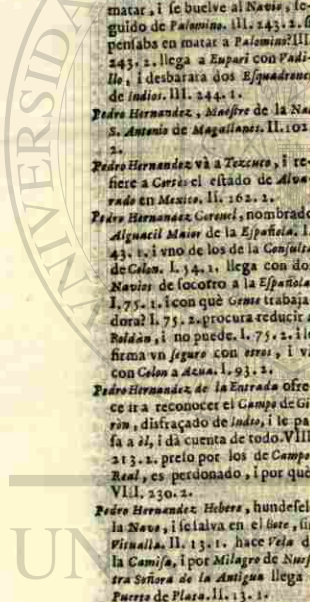 matar, i se buelve al Navio, se-
guido de Palomino. III. 243. 2. si
pensaba en matar a Palomino? III.
243. 2. llega a Eupari con Vadi-
llo, i desbarata dos Esquadrones
de Indios. III. 244. 1.
Pedro Hernandez, Maestre de la Nao
S. Antonio de Magallanes. II. 102.
2.
Pedro Hernandez và a Tezcuco, i re-
fiere a Cortès el estado de Alva-
rado en Mexico. II. 262. 2.
Pedro Hernandez Coronel, nombrado
Alguacil Maior de la Española. I.
43. 1. i vno de los de la Consulta
de Colon. I. 54. 1. llega con dos
Navios de socorro a la Española.
I. 75. 1. i con què Gente trabaja-
dora? I. 75. 2. procura reducir a
Roldàn, i no puede. I. 75. 2. i le
firma vn seguro con otros, i và
con Colon a Azua. I. 93. 2.
Pedro Hernandez de la Entrada ofre-
ce ir a reconocer el Campo de Gi-
ròn, disfraçado de Indio, i le pa-
sa a èl, i dà cuenta de todo. VIII.
213. 2. preso por los de Campo
Real, es perdonado, i por què?
VIII. 230. 2.
Pedro Hernandez Hebere, hundesele
la Nave, i se salva en el Bote, sin
Vitualla. II. 13. 1. hace Vela de
la Camisa, i por Milagro de Nues-
tra Señora de la Antigua llega a
Puerto de Plata. II. 13. 1.
UNIVERS
UN